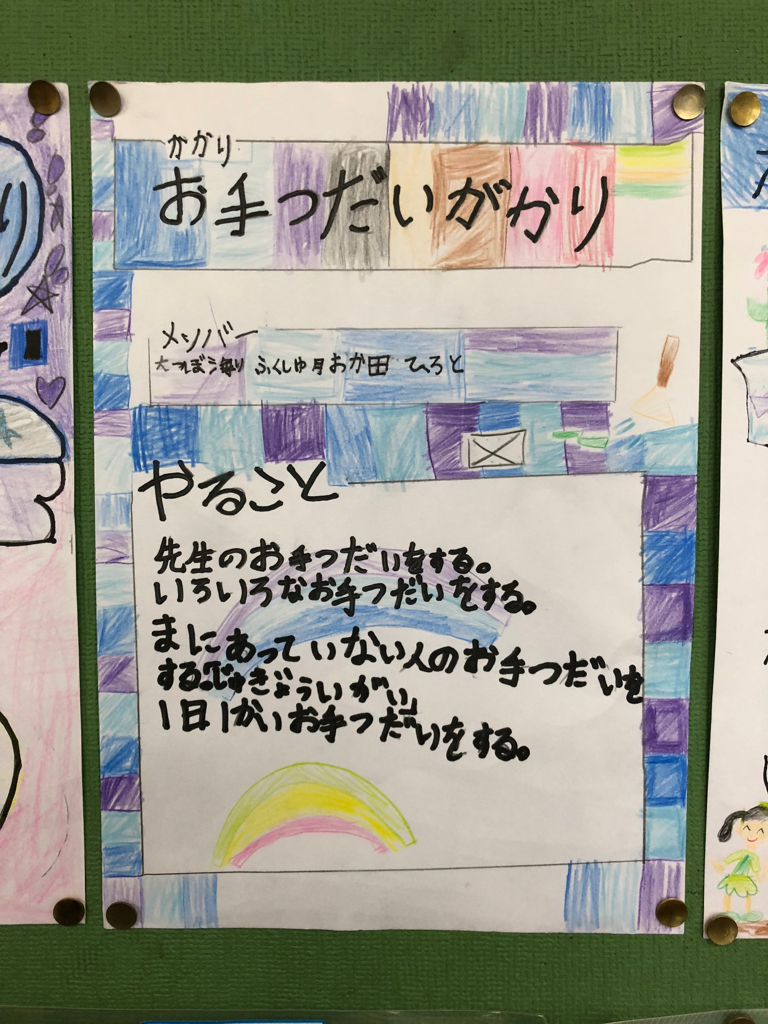 かかり
お手つだいがかり
メンバー
大つぼ海り ふくしゅ月 おか田 ひろと
やること
先生のお手つだいをする。
いろいろなお手つだいをする。
まにあっていない人のお手つだいを
する。じゅぎょういがいに
1日1かいお手つだいをする。
り